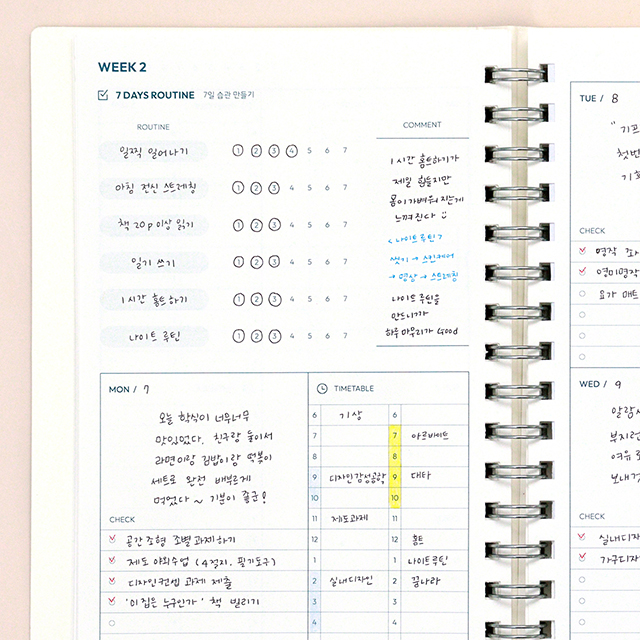 WEEK 2
7 DAYS ROUTINE 7일 습관 만들기
ROUTINE
일찍 일어나기 1 2 3 4 5 6 7
아침 전신 스트레칭 1 2 3 4 5 6 7
책 20p 이상 읽기 1 2 3 4 5 6 7
일기 쓰기 1 2 3 4 5 6 7
1시간 홈트하기 1 2 3 4 5 6 7
나이트 루틴 1 2 3 4 5 6 7
COMMENT
1시간 홈트하기가
제일 힘들지만
몸이 가벼워 지는게
느껴진다
<나이트루틴>
씻기 → 스킨케어
→ 명상 → 스트레칭
나이트 루틴을
만드니까
하루 마무리가 Good
MON / 7
오늘 학식이 너무너무
맛있었다. 친구랑 둘이서
라면이랑 김밥이랑 떡볶이
세트로 완전 배부르게
먹었다 ~ 기분이 좋군!
CHECK
공간조형 조별과제하기
제도 야외수업 (4절지, 필기도구)
디자인컨셉 과제 제출
'이 집은 누구인가' 책 빌리기
TIMETABLE
6 기상 6
7 7 아르바이트
8 8
9 디자인감성공학 9 대타
10 10
11 제도과제 11
12 12 홈트
1 1 나이트루틴
2 실내디자인 2 꿈나라
3 3
4 4
TUE / 8
"
첫번
CHECK
영작
영미명작
요가 매트
WED / 9
알람
부지런
여유
보내
CHECK
실내디자
가구디자